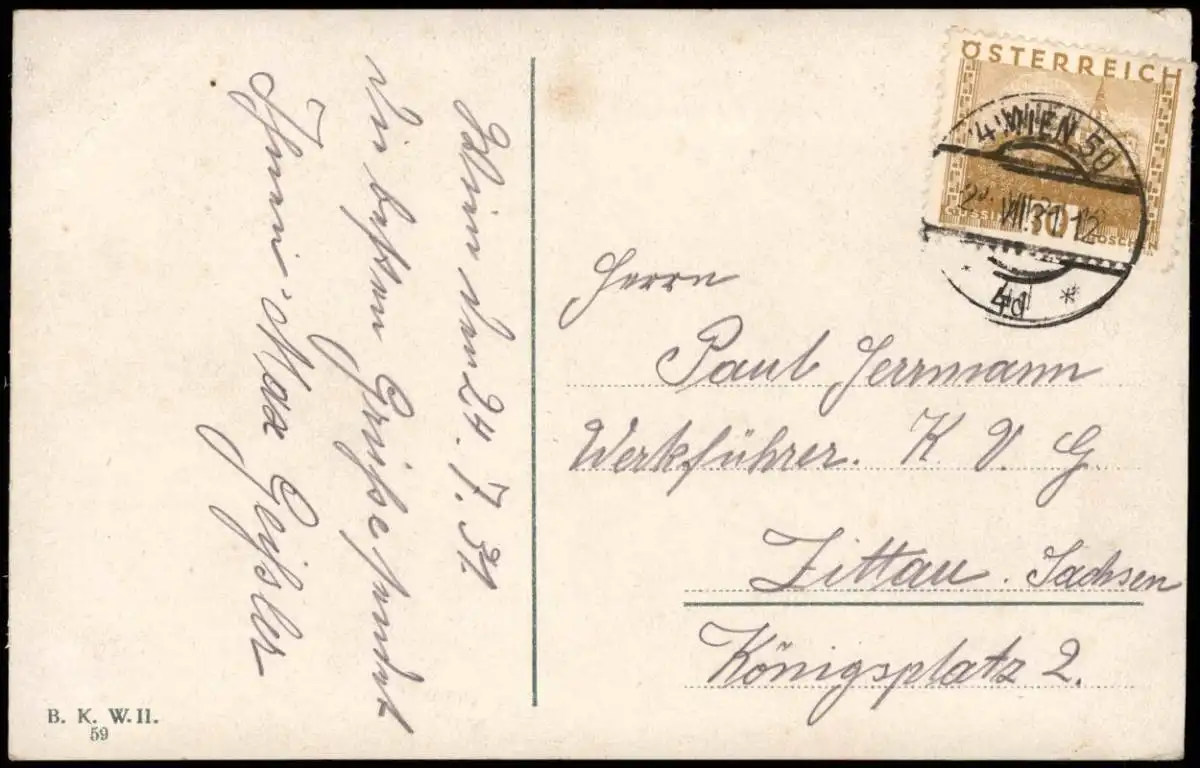 Wien den 24. 7. 31
Die besten Grüsse sendet
Ihnen Max Geißler
ÖSTERREICH
GÜSSING
GROSCHEN
WIEN 50
VII.31.12
4d
*
Herrn
Paul Herrmann
Werkführer. K. V. G.
Zittau. Sachsen
Königsplatz 2.
B. K. W. II.
59